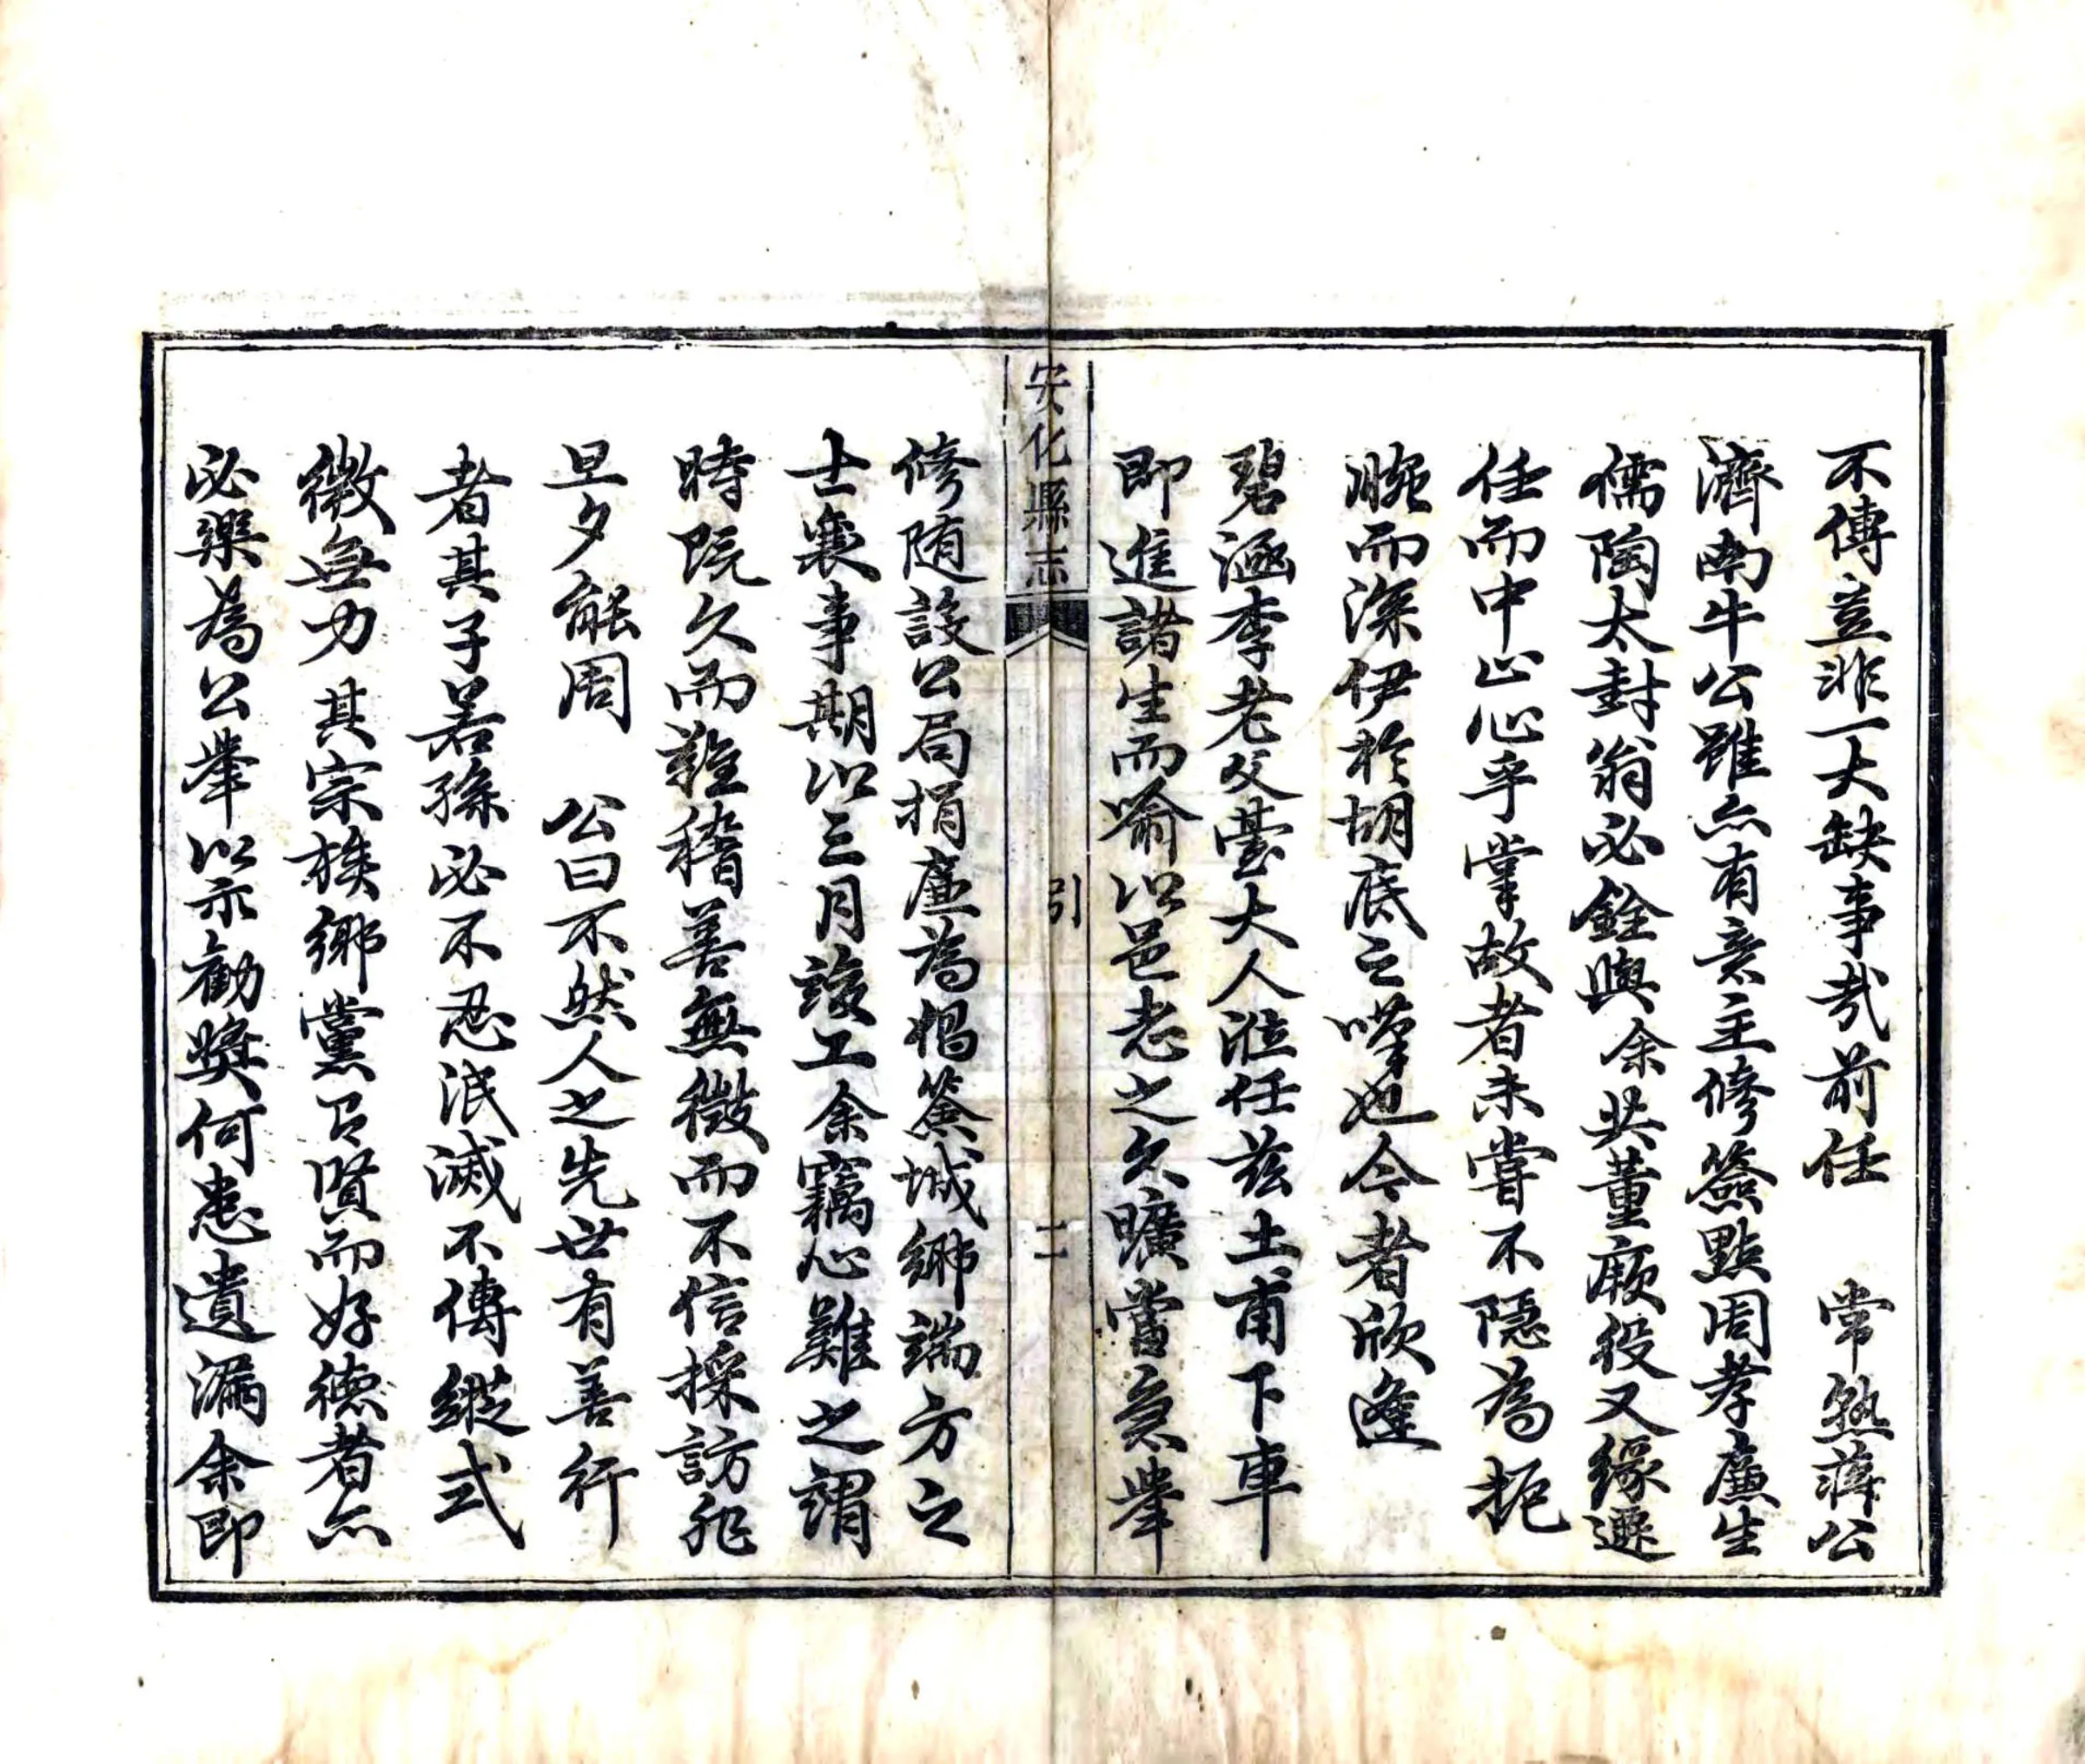 不傳豈非一大缺事哉前任　常熟蔣公
濟南牛公雖亦有意主修簽點周孝廉生
儒陶太封翁必銓與余共董厥役又緣遷
任而中止心乎掌故者未嘗不隱為扼
腕而深伊於胡底之嘆也今者欣逢
碧涵李老父臺大人涖任茲土甫下車
即進諸生而喻以邑志之久曠當急舉
安化縣志
引
二
修随設公局捐廉為倡簽城鄉端方之
士襄事期以三月竣工余竊心難之謂
時既久而難稽善無徵而不信採訪非
旦夕能周　公曰不然人之先世有善行
者其子若孫必不忍泯滅不傳縱式
微無力其宗族鄉黨之賢而好德者亦
必樂為公舉以示勸奬何患遺漏余即